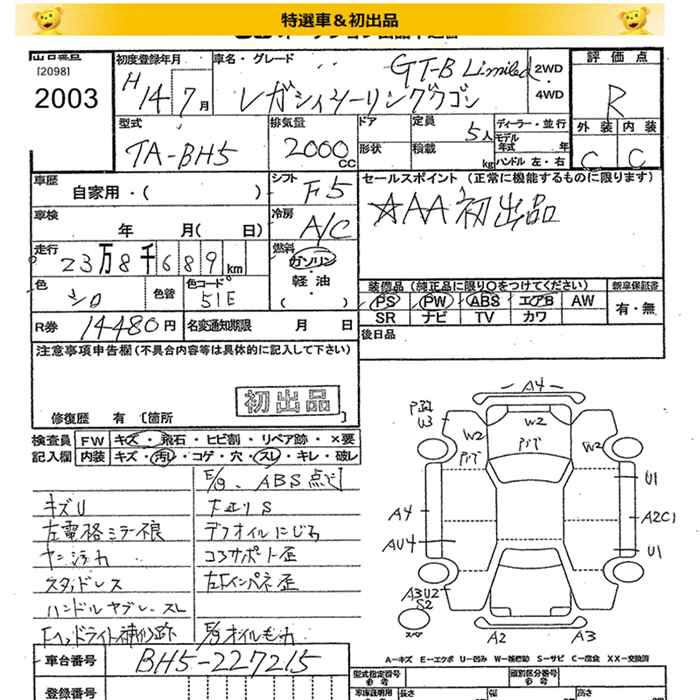 特選車＆初出品
出品番号
[2098]
2003
初度登録年月
H14 7月
車名・グレード
GT-B Limited
レガシィツーリングワゴン
2WD
・
4WD
評価点
R
外装 内装
C C
型式
TA-BH5
排気量
2000cc
ドア
形状
定員 5人
積載 kg
ディーラー・並行
モデル年式 年
ハンドル 左・右
車歴
自家用・( )
シフト
F5
セールスポイント (正常に機能するものに限ります)
☆AA初出品
車検
年 月( 日)
冷房
A/C
走行
23万8千689km
燃料
ガソリン
・
軽油
・
( )
色
シロ
色替
色コード
51E
装備品 (純正品に限り○をつけてください)
新車保証書
PS PW ABS エアB AW
SR ナビ TV カワ
有・無
R券 14480円
名変通知期限 月 日
後日品
注意事項申告欄 (不具合内容等は具体的に記入して下さい)
初出品
修復歴 有 [箇所
検査員記入欄
FW キズ・飛石・ヒビ割・リペア跡・×要
内装 キズ・汚れ・コゲ・穴・スレ・キレ・破レ
E/g、ABS点灯
キズU
下廻りS
左電格ミラー不良
デフオイルにじみ
ヤニ汚れ
コアサポート歪
スタッドレス
左Fインパネ歪
ハンドルヤブレ、スレ
Fヘッドライト補修跡
E/gオイルもれ
A4
U3
W2
W2
W2
U1
A4
A2C1
AU4
U1
A3U2
S2
A2
A3
A－キズ E－エクボ U－凹み W－補修跡 S－サビ C－腐食 XX－交換済
車台番号
BH5-227215
登録番号
型式指定番号
参考
類別区分番号
参考
車庫証明用
長さ
幅
高さ